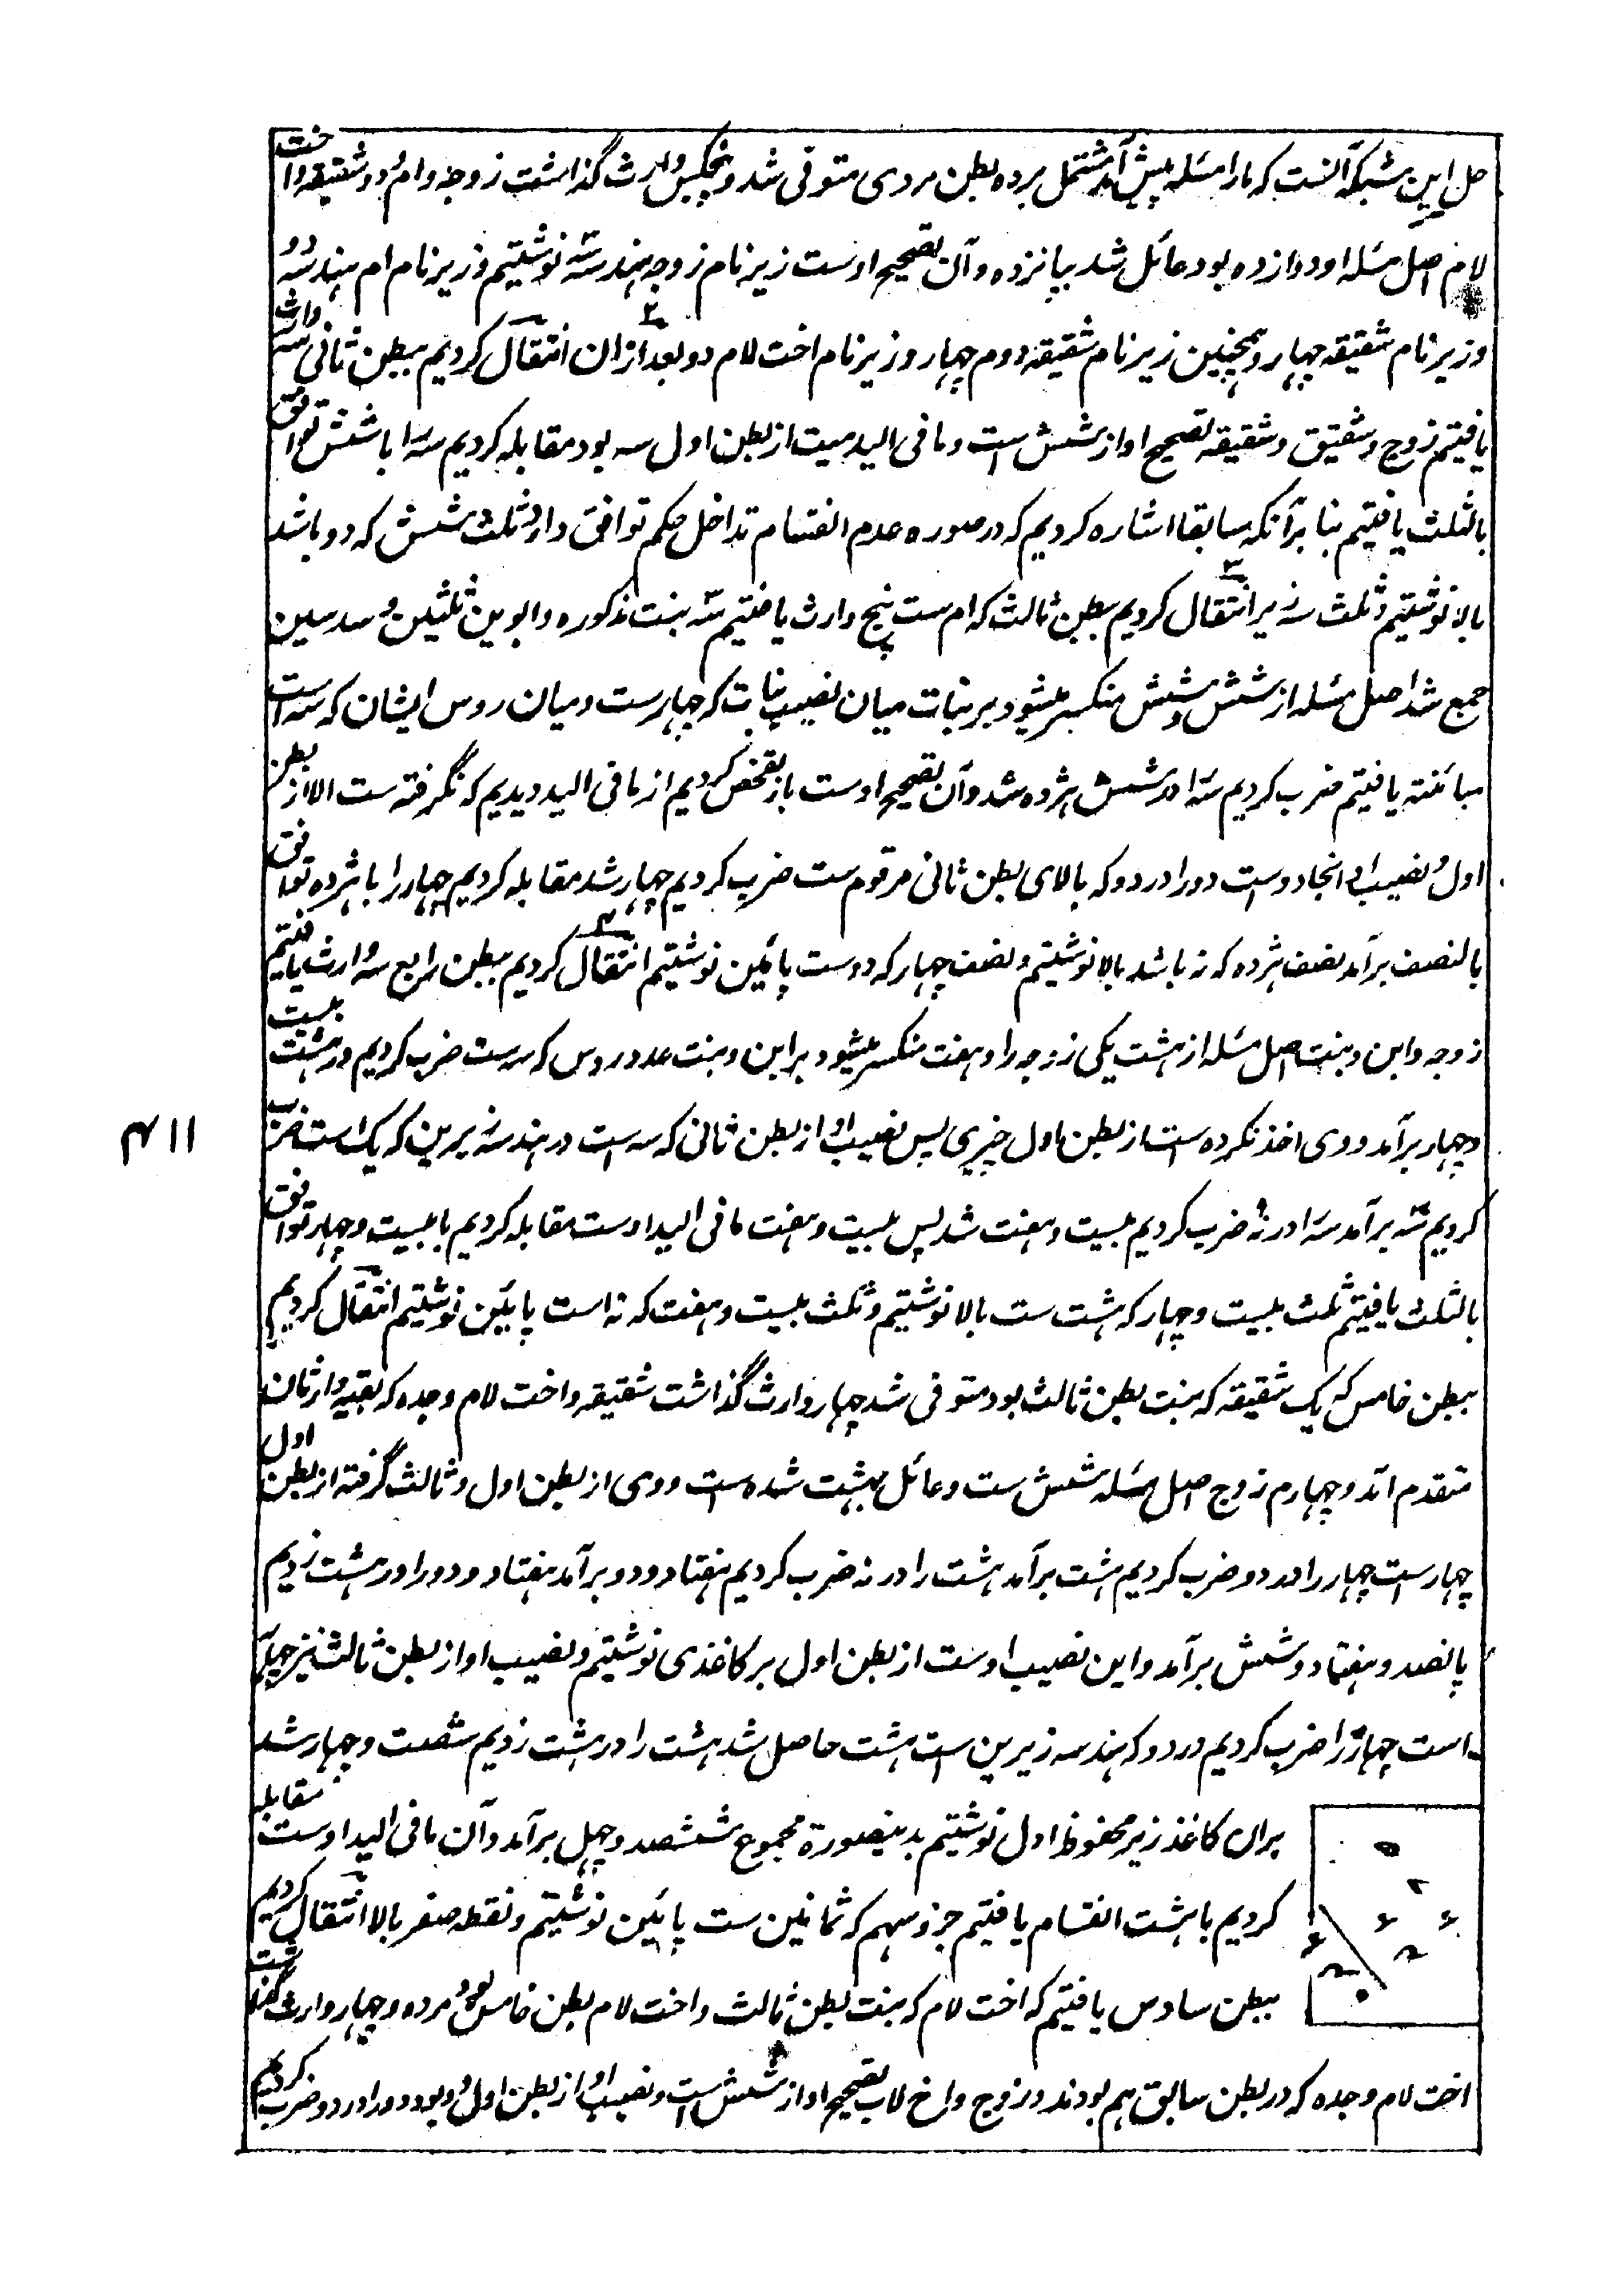 حل این شبکه آنست که مارا مسئله پیش آمد مشتمل برده بطن مردی متوفی شد و پنجکس وارث گذاشت زوجه و ام و دو شقیقه و اخت
لام اصل مسئله او دوازده بود عائل شد بپانزده و آن تصحیح اوست زیر نام زوجه هندسه سه نوشتیم و زیر نام ام هندسه دو
و زیر نام شقیقه چهار و همچنین زیر نام شقیقه دوم چهار و زیر نام اخت لام دو بعد ازان انتقال کردیم ببطن ثانی سه وارث
یافتیم زوج و شقیق و شقیقه تصحیح او از شش است و مافی الید میت از بطن اول سه بود مقابله کردیم سه را با شش توافق
بالثلث یافتیم بنا برآنکه سابقا اشاره کردیم که در صوره عدم انقسام تداخل حکم توافق دارد ثلث شش که دو باشد
بالا نوشتیم و ثلث سه زیر انتقال کردیم ببطن ثالث که ام ست پنج وارث یافتیم سه بنت مذکوره و ابوین ثلثین و سدسین
جمع شد اصل مسئله از شش و شش منکسر میشود بر بنات میان نصیب بنات که چهارست و میان روس ایشان که سه است
مبائنته یافتیم ضرب کردیم سه را در شش هژده شد و آن تصحیح اوست باز تفحص کردیم از مافی الید دیدیم که نگرفته ست الا از بطن
اول و نصیب او انجا دوست دو را در دو که بالای بطن ثانی مرقوم ست ضرب کردیم چهار شد مقابله کردیم چهار را با هژده توافق
بالنصف برآمد نصف هژده که نه باشد بالا نوشتیم و نصف چهار که دوست پائین نوشتیم انتقال کردیم ببطن رابع سه وارث یافتیم
زوجه و ابن و بنت اصل مسئله از هشت یکی زوجه را و هفت منکسر میشود بر ابن و بنت عدد روس که سه ست ضرب کردیم در هشت بیست
و چهار برآمد و وی اخذ نکرده ست از بطن اول چیزی پس نصیب او از بطن ثانی که سه است در هندسه زیرین که یک است ضرب
کردیم سه برآمد سه را در نه ضرب کردیم بیست و هفت شد پس بیست و هفت مافی الید اوست مقابله کردیم با بیست و چهار توافق
بالثلث یافتیم ثلث بیست و چهار که هشت ست بالا نوشتیم و ثلث بیست و هفت که نه است پائین نوشتیم انتقال کردیم
ببطن خامس که یک شقیقه که بنت بطن ثالث بود متوفی شد چهار وارث گذاشت شقیقه و اخت لام و جده که بقیه وارثان
متقدم اند و چهارم زوج اصل مسئله شش ست و عائل بهشت شده ست و وی از بطن اول و ثالث گرفته از بطن اول
چهارست چهار را در دو ضرب کردیم هشت برآمد هشت را در نه ضرب کردیم هفتاد و دو برآمد هفتاد و دو را در هشت زدیم
پانصد و هفتاد و شش برآمد و این نصیب اوست از بطن اول بر کاغذی نوشتیم و نصیب او از بطن ثالث نیز چهار
است چهار را ضرب کردیم در دو که هندسه زیرین ست هشت حاصل شد هشت را در هشت زدیم شصت و چهار شد
بران کاغذ زیر محفوظ اول نوشتیم بدینصورة مجموع ششصد و چهل برآمد و آن مافی الید اوست مقابله
کردیم با هشت انقسام یافتیم جزو سهم که ثمانین ست پائین نوشتیم و نقطه صفر بالا انتقال کردیم
ببطن سادس یافتیم که اخت لام که بنت بطن ثالث و اخت لام بطن خامس بود مرده و چهار وارث گذاشت
اخت لام و جده که در بطن سابق هم بودند و زوج و اخ لاب تصحیح او از شش ست و نصیب او از بطن اول دو بود دو را در دو ضرب کردیم
۴۱۱